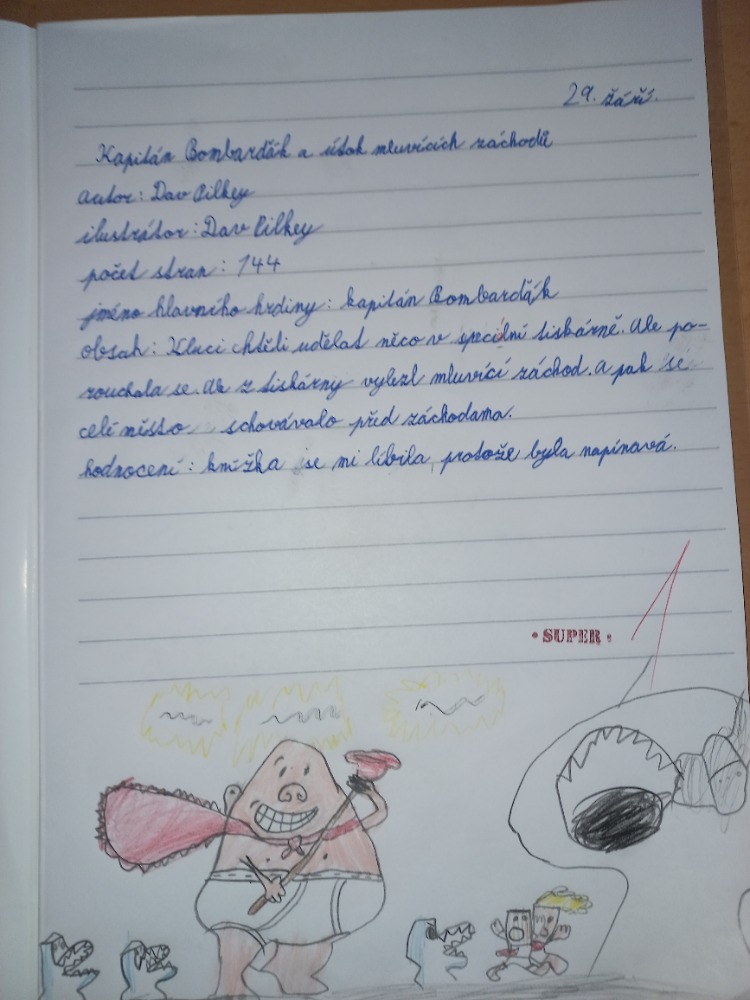 29. září.
Kapitán Bombarďák a útok mluvících záchodů
autor: Dav Pilkey
ilustrátor: Dav Pilkey
počet stran: 144
jméno hlavního hrdiny: kapitán Bombarďák
obsah: Kluci chtěli udělat něco v speciální tiskárně. Ale po-
rouchala se. Ale z tiskárny vylezl mluvící záchod. A pak se
celé město schovávalo před záchodama.
hodnocení: knížka se mi líbila, protože byla napínavá.
• SUPER •